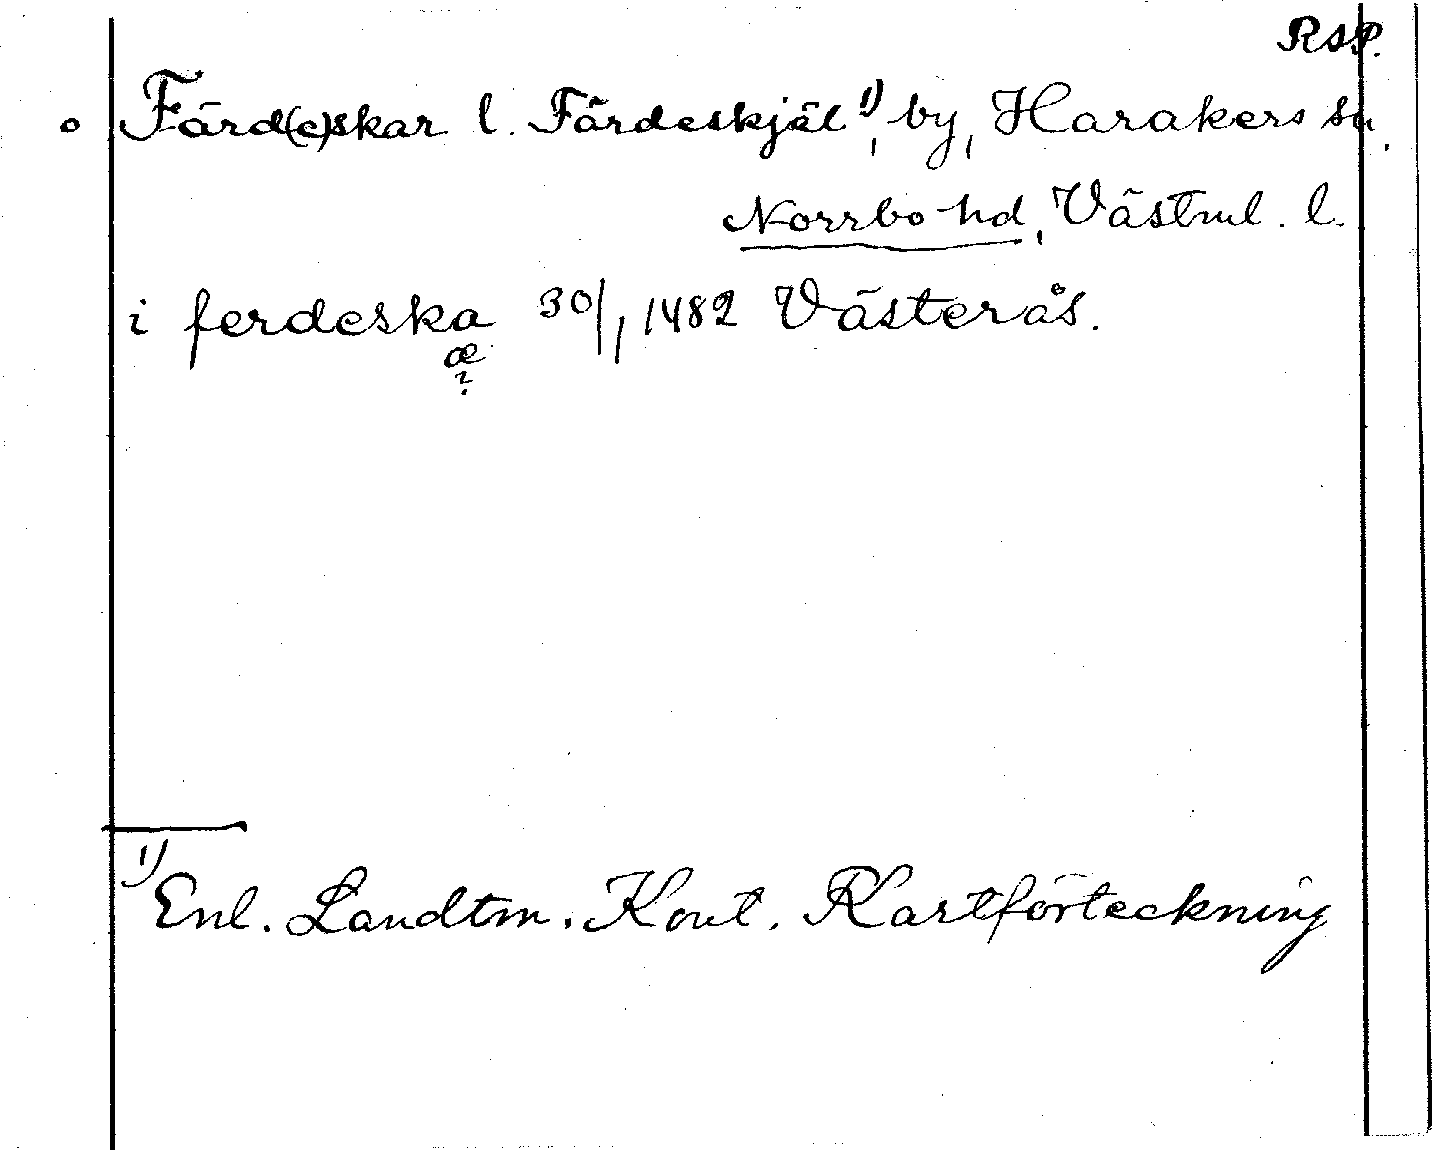 RSP.
o Färd(e)skar l. Färdeskjäl 1), by, Harakers sn,
Norrbo hd, Västml. l.
i ferdeska 30/1 1482 Västerås.
æ
?
1) Enl. Landtm. Kont. Kartförteckning